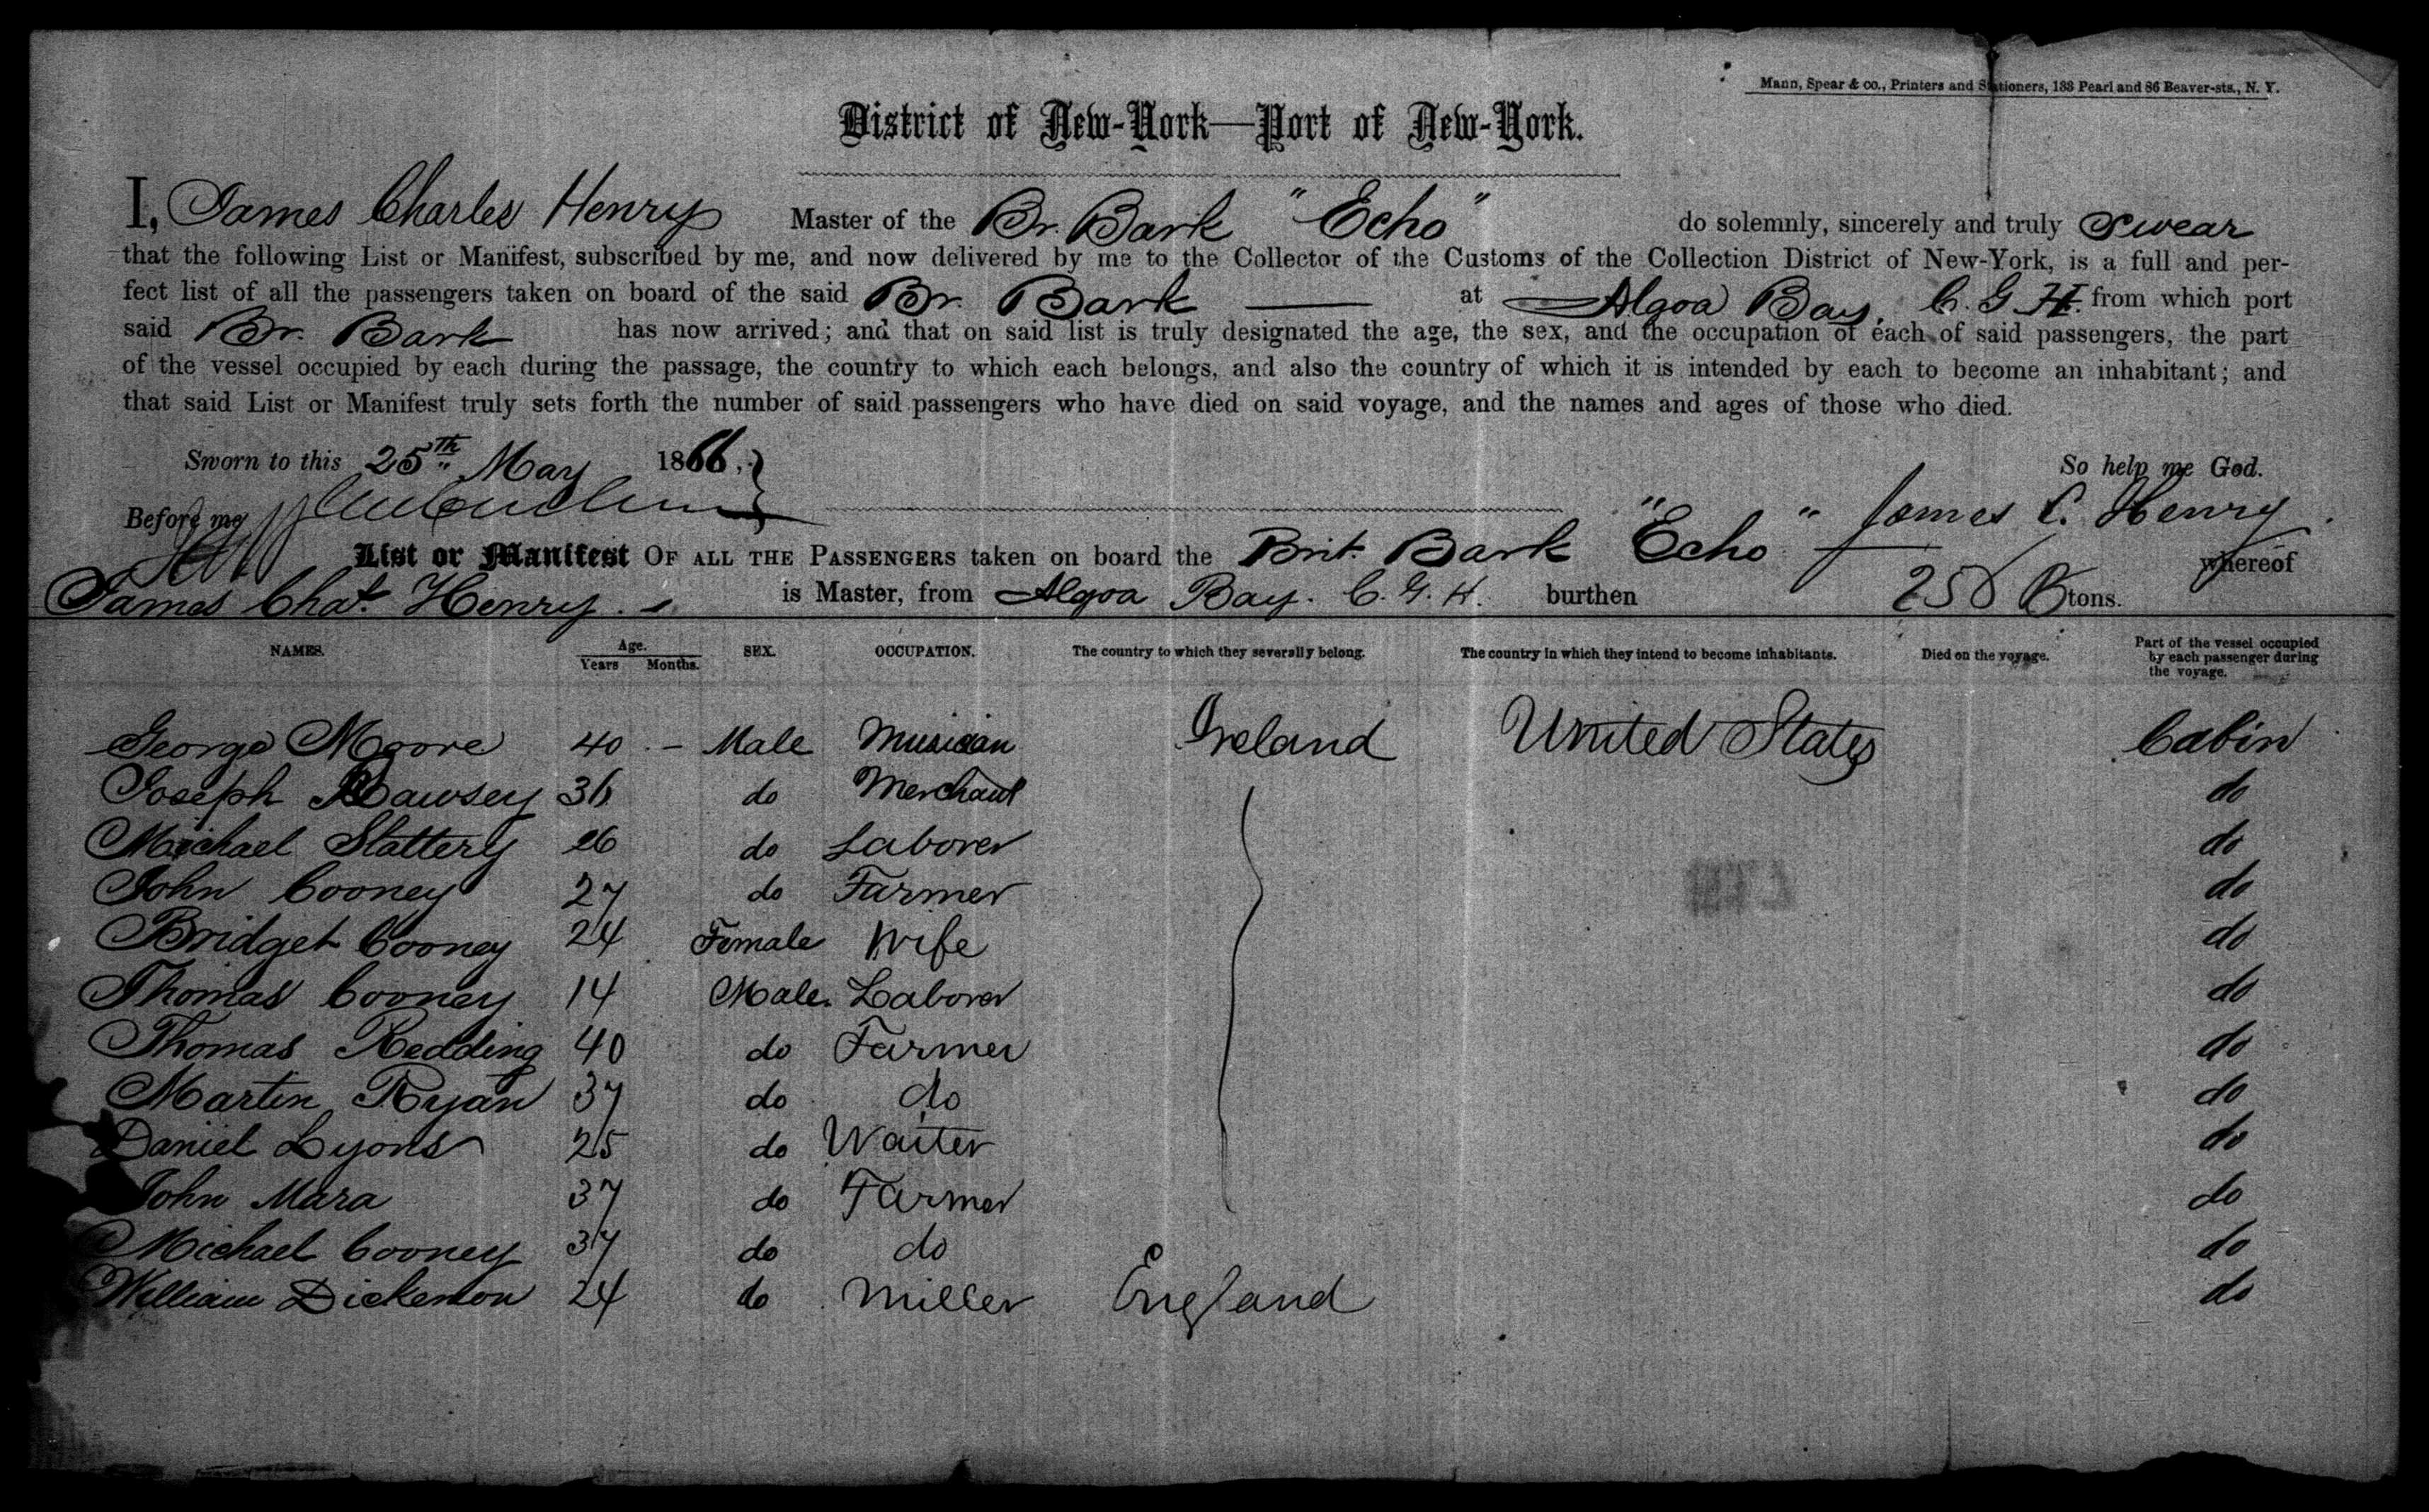 Mann, Spear & co., Printers and Stationers, 133 Pearl and 86 Beaver-sts., N. Y.
District of New-York—Port of New-York.
I, James Charles Henry Master of the Br. Bark "Echo" do solemnly, sincerely and truly swear
that the following List or Manifest, subscribed by me, and now delivered by me to the Collector of the Customs of the Collection District of New-York, is a full and per-
fect list of all the passengers taken on board of the said Br. Bark at Algoa Bay, C. G. H. from which port
said Br. Bark has now arrived; and that on said list is truly designated the age, the sex, and the occupation of each of said passengers, the part
of the vessel occupied by each during the passage, the country to which each belongs, and also the country of which it is intended by each to become an inhabitant; and
that said List or Manifest truly sets forth the number of said passengers who have died on said voyage, and the names and ages of those who died.
Sworn to this 25th May 1866, So help me God.
Before me James C. Henry
List or Manifest OF ALL THE PASSENGERS taken on board the Brit. Bark "Echo" whereof
James Chas. Henry is Master, from Algoa Bay. C. G. H. burthen tons.
NAMES. Age. Years Months. SEX. OCCUPATION. The country to which they severally belong. The country in which they intend to become inhabitants. Died on the voyage. Part of the vessel occupied by each passenger during the voyage.
George Moore 40 - Male Musician Ireland United States Cabin
Joseph 36 do Merchant do
Michael Slattery 26 do Laborer do
John Cooney 27 do Farmer do
Bridget Cooney 24 Female Wife do
Thomas Cooney 14 Male. Laborer do
Thomas Redding 40 do Farmer do
Martin Ryan 37 do do do
Daniel Lyons 25 do Waiter do
John Mara 37 do Farmer do
Michael Cooney 37 do do do
William Dickenson 24 do Miller England do